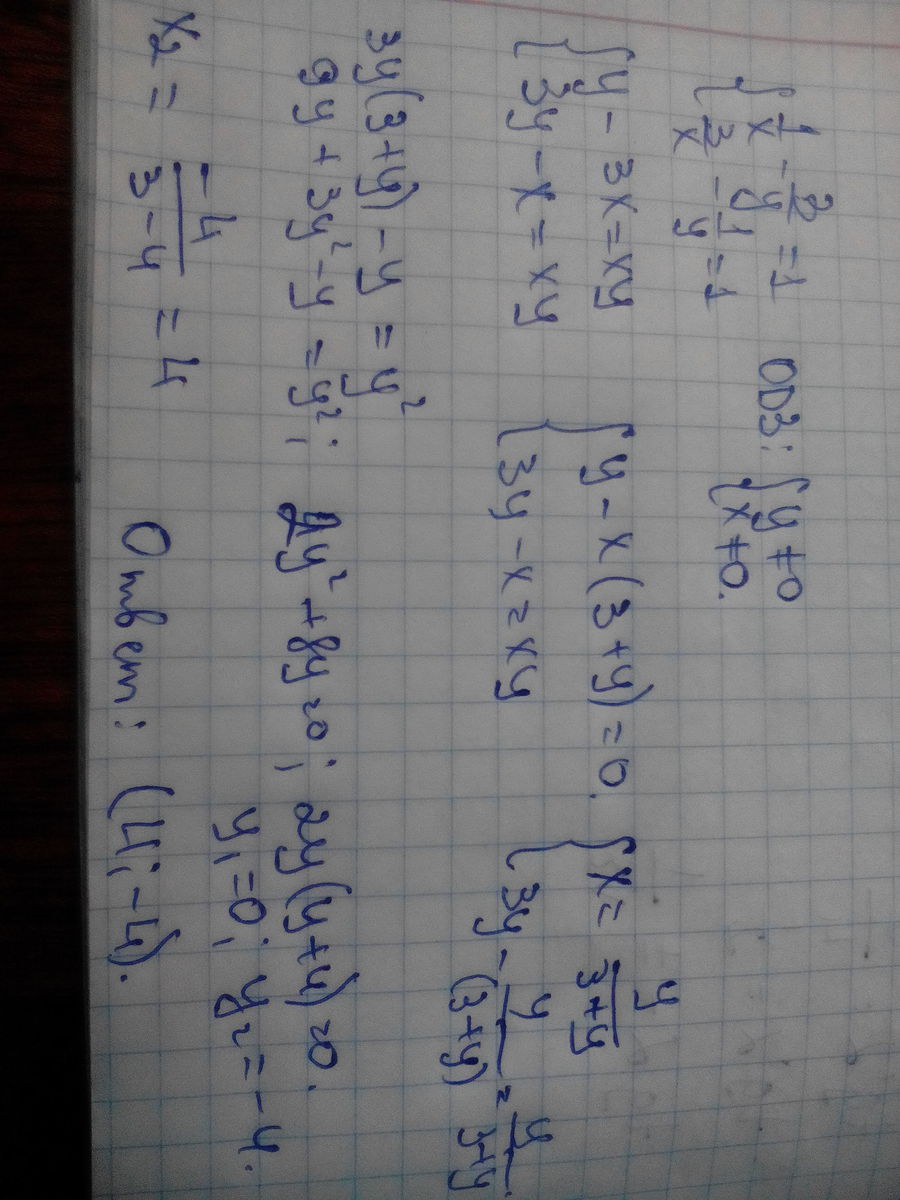 { 1/x - 3/y = 1   ОДЗ: { y ≠ 0
{ 3/x - 1/y = 1   { x ≠ 0.
{ y - 3x = xy   { y - x(3+y) = 0.   { x = y/(3+y)
{ 3y - x = xy   { 3y - x = xy   { 3y - y/(3+y) = y/(3+y).
3y(3+y) - y = y²
9y + 3y² - y = y²; 2y² + 8y = 0; 2y(y+4) = 0.
y₁ = 0; y₂ = -4.
x₂ = -4/(3-4) = 4   Ответ: (4; -4).